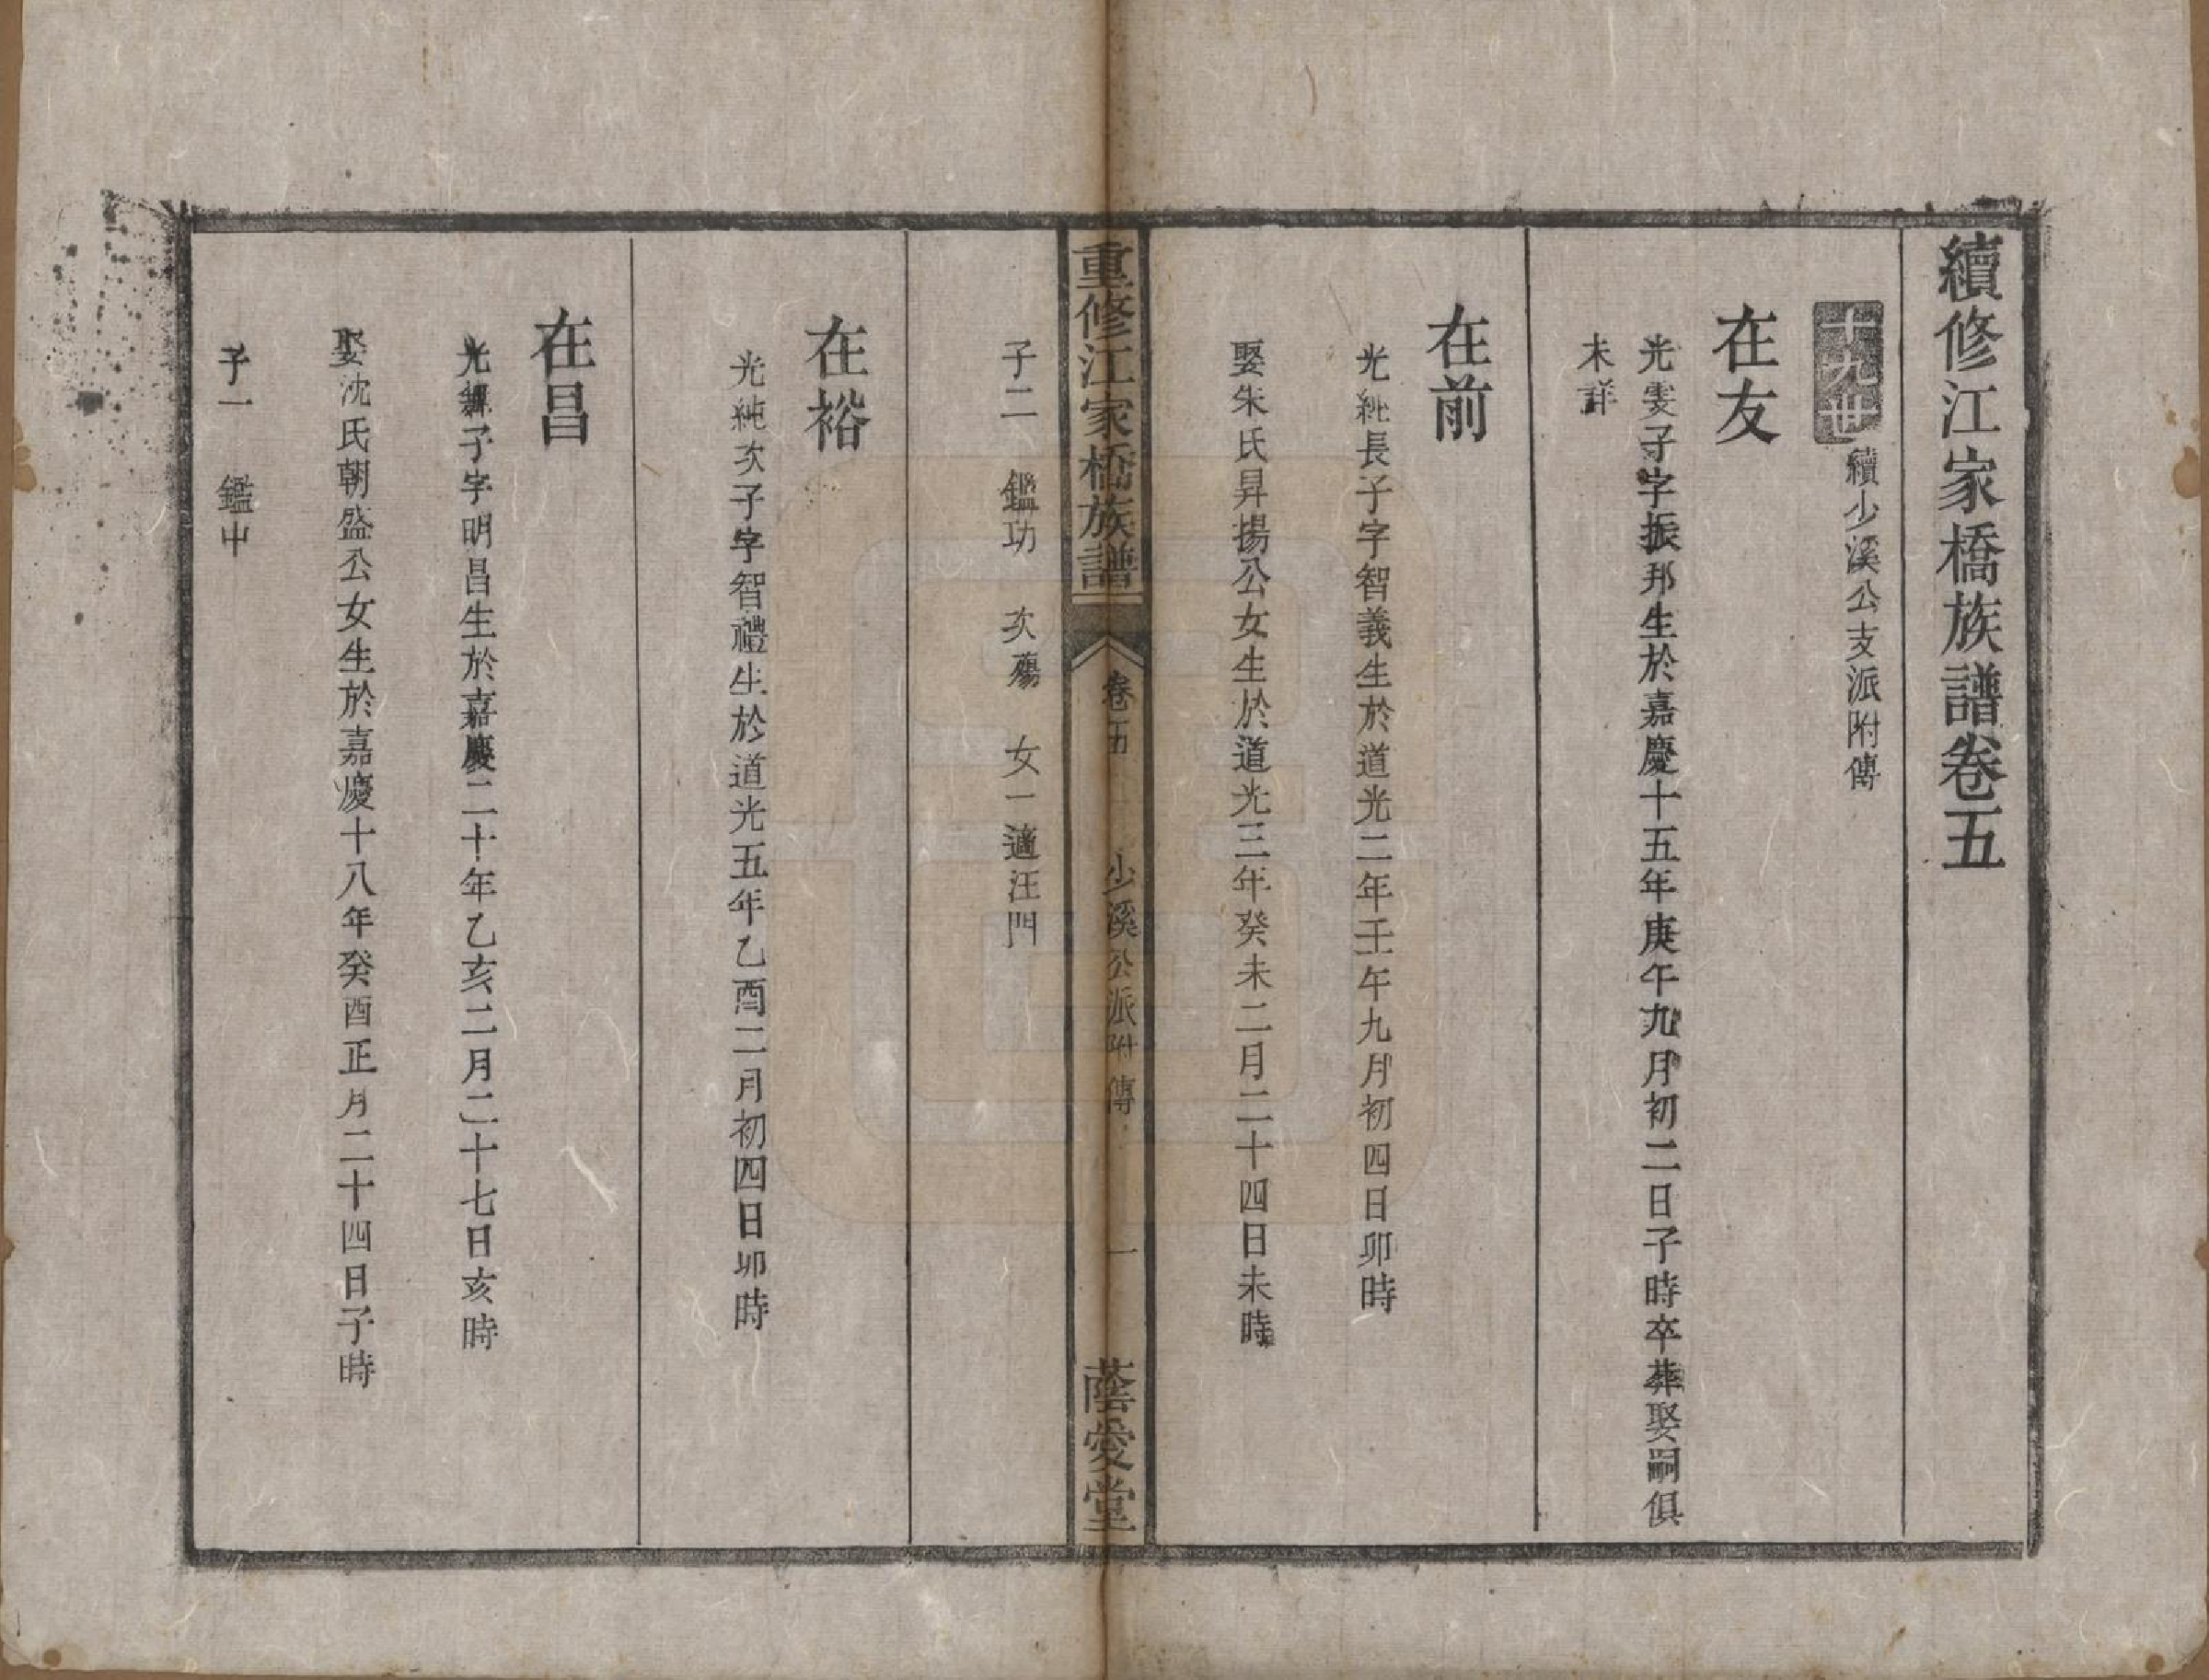 續修江家橋族譜卷五
十九世 續少溪公支派附傳
在友
光雯子字振邦生於嘉慶十五年庚午九月初二日子時卒葬娶嗣俱
未詳
在前
光純長子字智義生於道光二年壬午九月初四日卯時
娶朱氏昇揚公女生於道光三年癸未二月二十四日未時
重修江家橋族譜 卷五 少溪公派附傳 一 蔭愛堂
子二 鑑功 次殤 女一適汪門
在裕
光純次子字智禮生於道光五年乙酉二月初四日卯時
在昌
光輝子字明昌生於嘉慶二十年乙亥二月二十七日亥時
娶沈氏朝盛公女生於嘉慶十八年癸酉正月二十四日子時
子一 鑑中